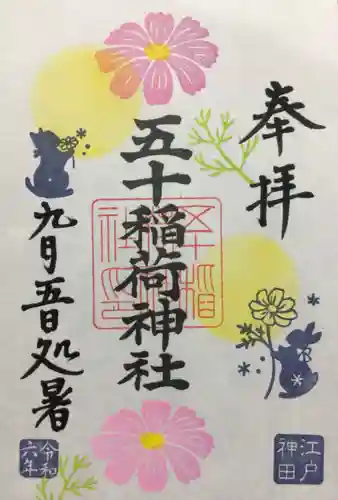 奉拝
五十稲荷神社
九月五日処暑
令和
六年
江戸
神田